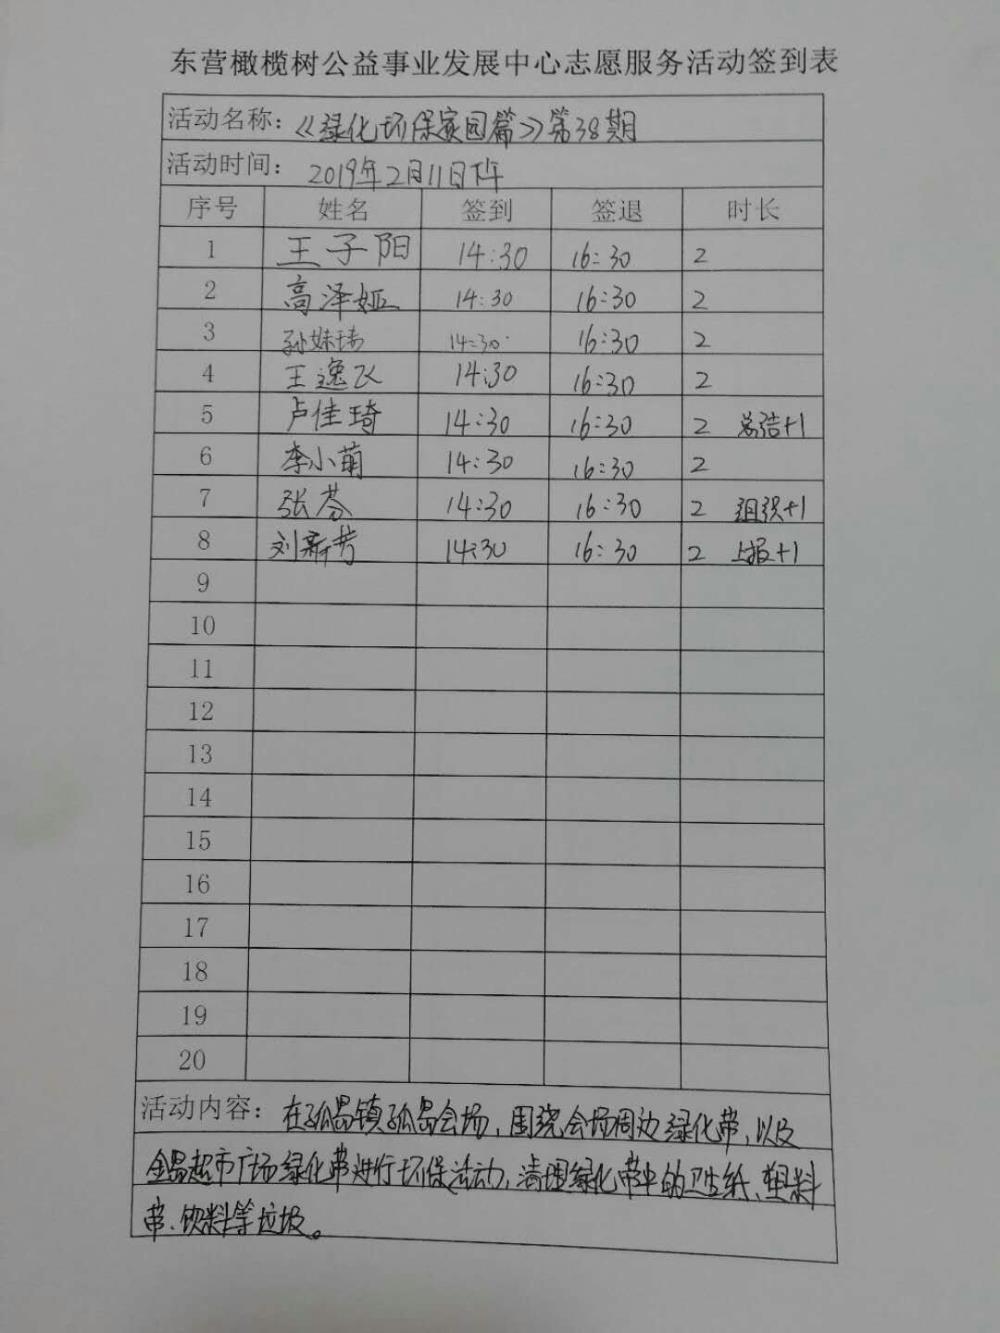 东营橄榄树公益事业发展中心志愿服务活动签到表
活动名称: 《绿化环保家园篇》第38期
活动时间: 2019年2月11日下午
序号 姓名 签到 签退 时长
1 王子阳 14:30 16:30 2
2 高泽娅 14:30 16:30 2
3 孙妹玮 14:30 16:30 2
4 王逸飞 14:30 16:30 2
5 卢佳琦 14:30 16:30 2 总结+1
6 李小萌 14:30 16:30 2
7 张芬 14:30 16:30 2 组织+1
8 刘新芳 14:30 16:30 2 上报+1
9
10
11
12
13
14
15
16
17
18
19
20
活动内容: 在孤岛镇孤岛会场,围绕会场周边绿化带,以及
金岛超市广场绿化带进行环保活动,清理绿化带中的卫生纸、塑料
带、饮料等垃圾。